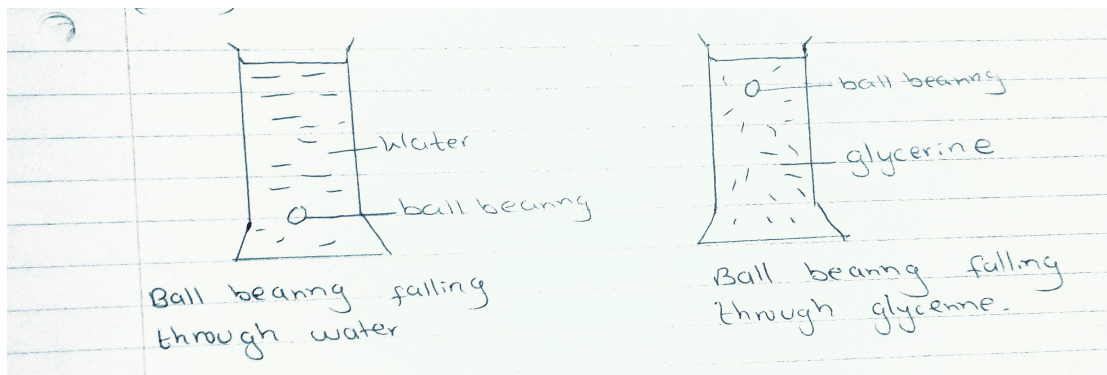 Water
ball bearing
Ball bearing falling
through water
ball bearing
glycerine
Ball bearing falling
through glycerine.